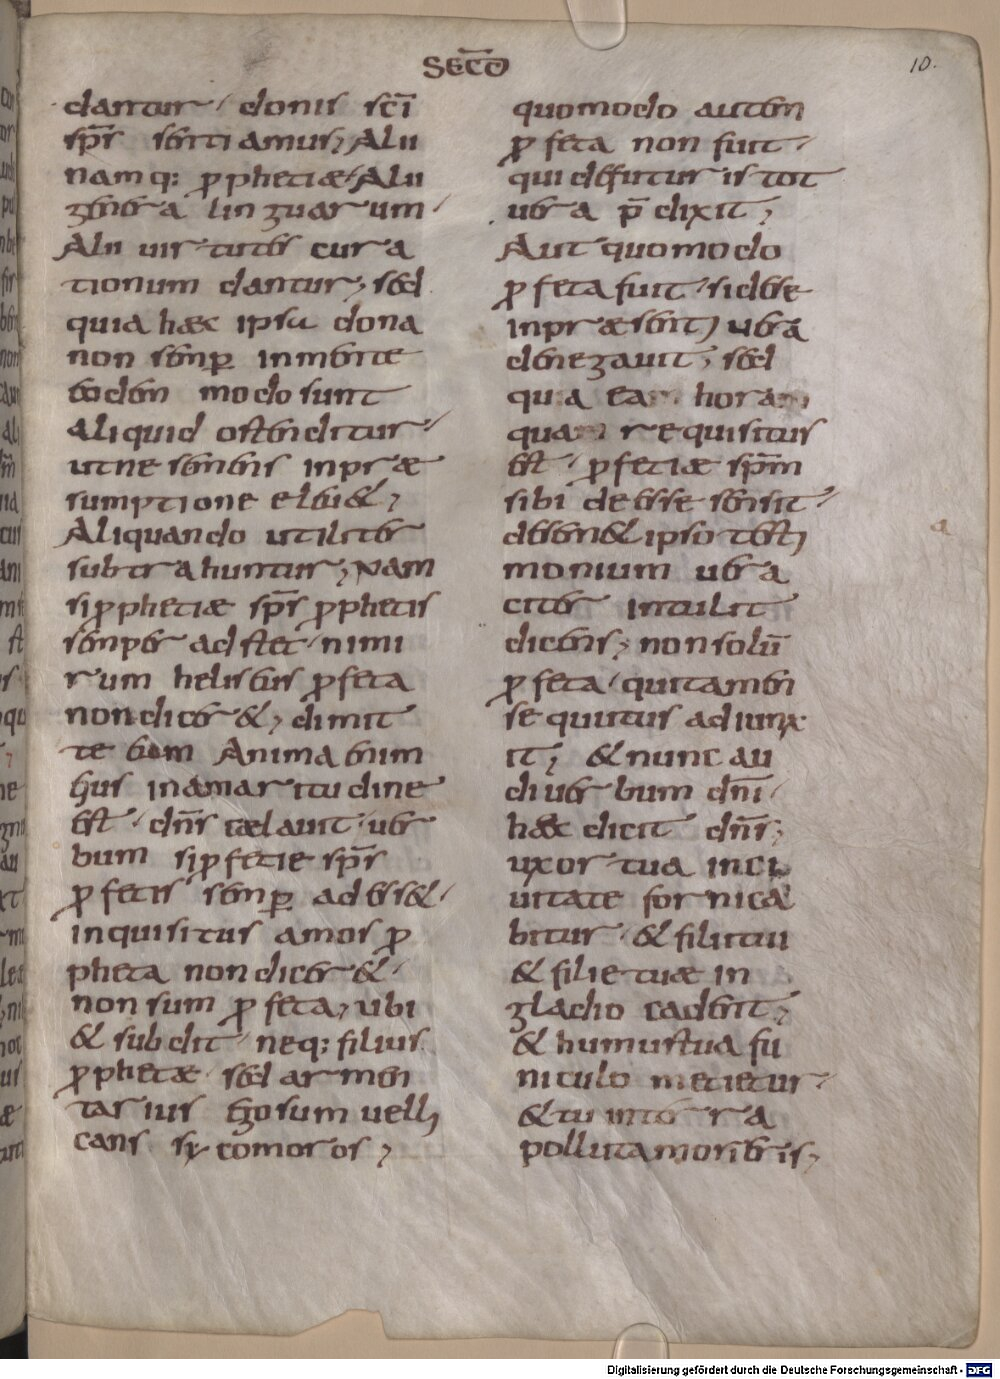 SEC̅D
10.
dantur, donis sc̅i
sp̅s sentiamus; Alii
namq: p̱phetiae, Alii
genera linguarum,
Alii uirtutes cura
tionum dantur; sed
quia haec ipsa dona
non semp̱ inmente
eodem modo sunt
aliquid ostenditur,
ut ne semens inprae
sumptione eleu&;
Aliquando utiliter
subtrahuntur; Nam
si p̱phetiae sp̅s p̱phetis
semper adstet, nimi
rum heliseus p̱feta
non dicer&; dimit
te eam Anima enim
eius inamaritudine
est, dn̅s caelauit, uer
bum si p̱fetie sp̅s
p̱fetis semp̱ adess&,
inquisitus amos p̱
pheta non dicer&,
non sum p̱feta; ubi
& subdit, neq: filius
p̱phetae, sed armen
tarius Ego sum uelli
cans sycomoros;
quomodo autem
p̱feta non fuit,
qui defuturis tot
uera p̄dixit;
Aut quomodo
p̱feta fuit, si de se
inpraesenti uera
denegauit; sed
quia eam horam
quam requisitus
est, p̱fetiae sp̅m
sibi deesse sensit,
desem&ipso testi
monium uera
citer intulit
dicens; non solū
p̱feta, qui tamen
sequutus adiunx
it; & nunc au
di uerbum dn̅i,
haec dicit dn̅s;
uxor tua inci
uitate fornica
bitur, & filii tui
& filie tuae in
gladio cadent;
& humus tua fu
niculo metietur,
& tu inter ra
polluta morieris;
a
Digitalisierung gefördert durch die Deutsche Forschungsgemeinschaft - DFG